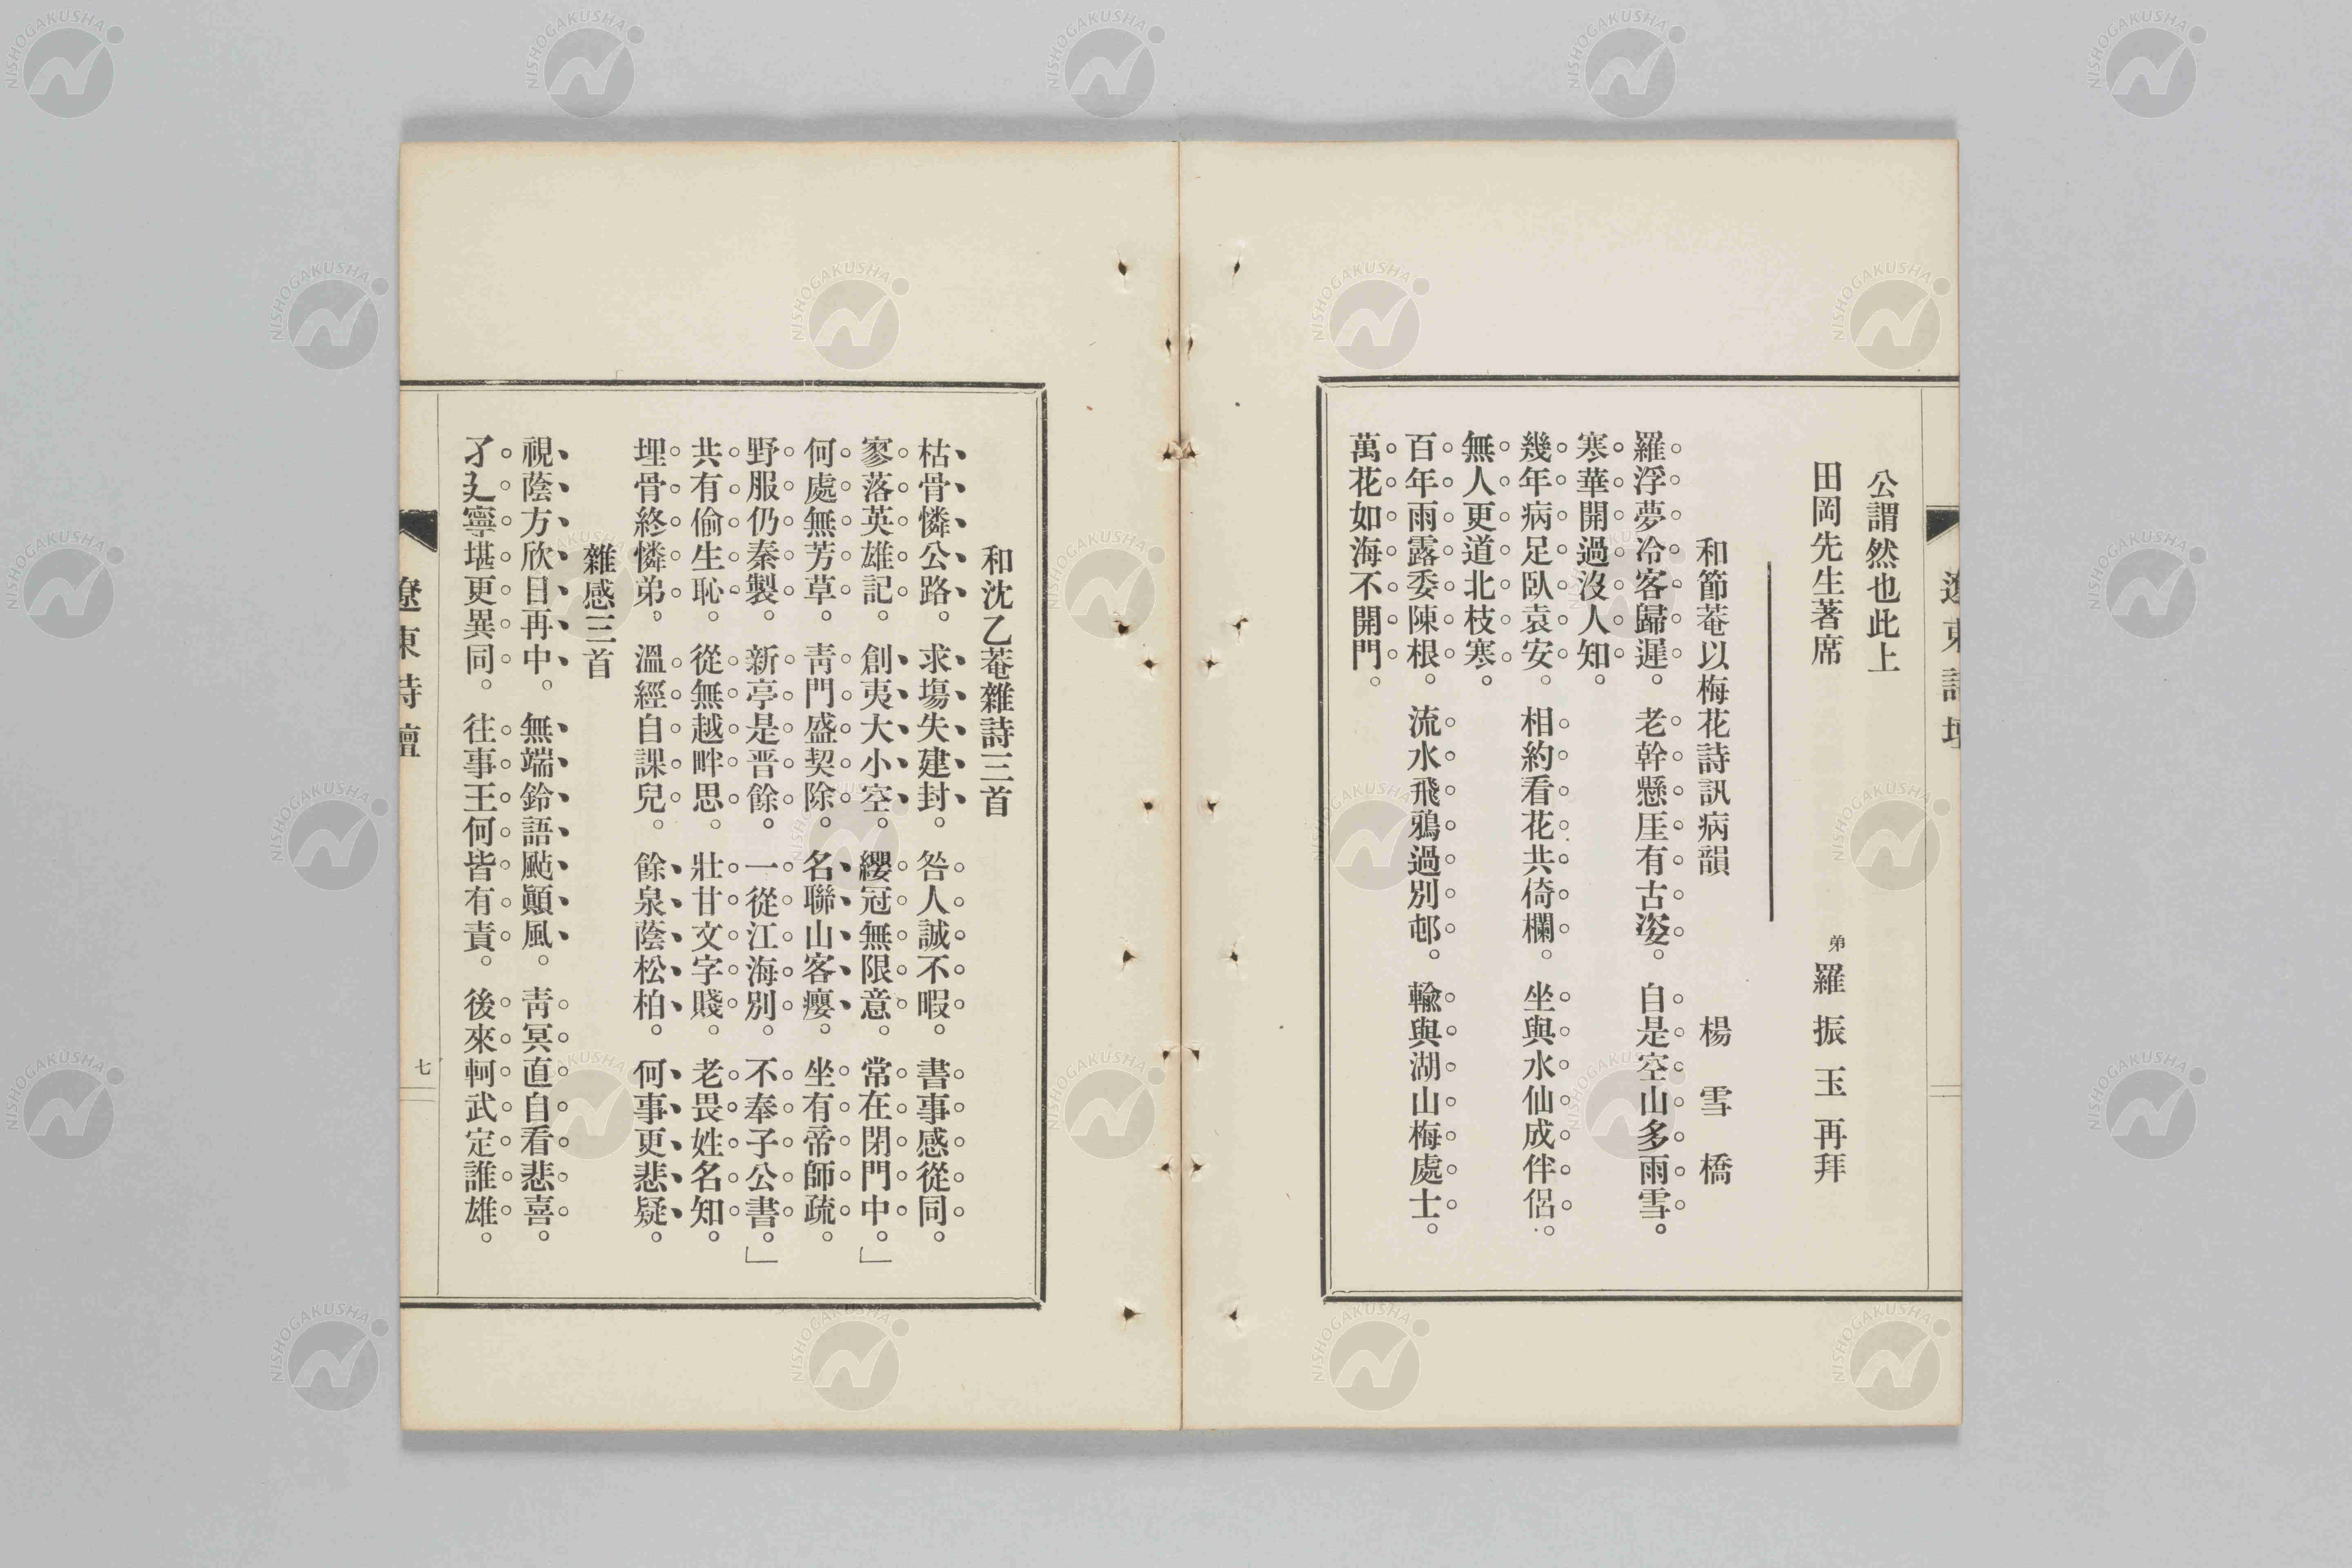 公謂然也此上
田岡先生著席
弟羅振玉再拜
和節菴以梅花詩訊病韻 楊雪橋
羅浮夢冷客歸遲。老幹懸厓有古姿。自是空山多雨雪。
寒華開過沒人知。
幾年病足臥袁安。相約看花共倚欄。坐與水仙成伴侶。
無人更道北枝寒。
百年雨露委陳根。流水飛鴉過別邨。輸與湖山梅處士。
萬花如海不開門。
遼東詩壇
和沈乙菴雜詩三首
枯骨憐公路。求塲失建封。咎人誠不暇。書事感從同。
寥落英雄記。創夷大小空。纓冠無限意。常在閉門中。」
何處無芳草。靑門盛契除。名聯山客癭。坐有帝師疏。
野服仍秦製。新亭是晋餘。一從江海別。不奉子公書。」
共有偷生恥。從無越畔思。壯甘文字賤。老畏姓名知。
埋骨終憐弟。溫經自課兒。餘泉蔭松柏。何事更悲疑。
雜感三首
視蔭方欣日再中。無端鈴語颭顚風。靑冥直自看悲喜。
孑孓寧堪更異同。往事王何皆有責。後來軻武定誰雄。
遼東詩壇
七
NISHOGAKUSHA